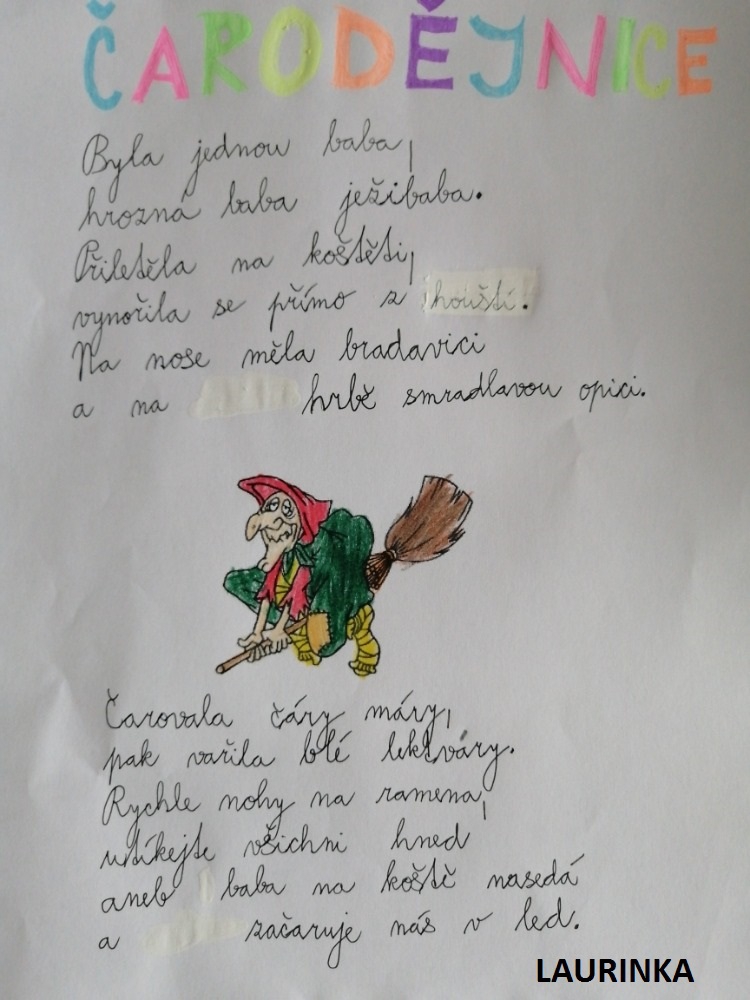 ČARODĚJNICE
Byla jednou baba,
hrozná baba ježibaba.
Přiletěla na koštěti,
vynořila se přímo z houští.
Na nose měla bradavici
a na hrbě smradlavou opici.
Čarovala čáry máry,
pak vařila blé lektváry.
Rychle nohy na ramena,
utíkejte všichni hned
aneb baba na koště nasedá
a začaruje nás v led.
LAURINKA